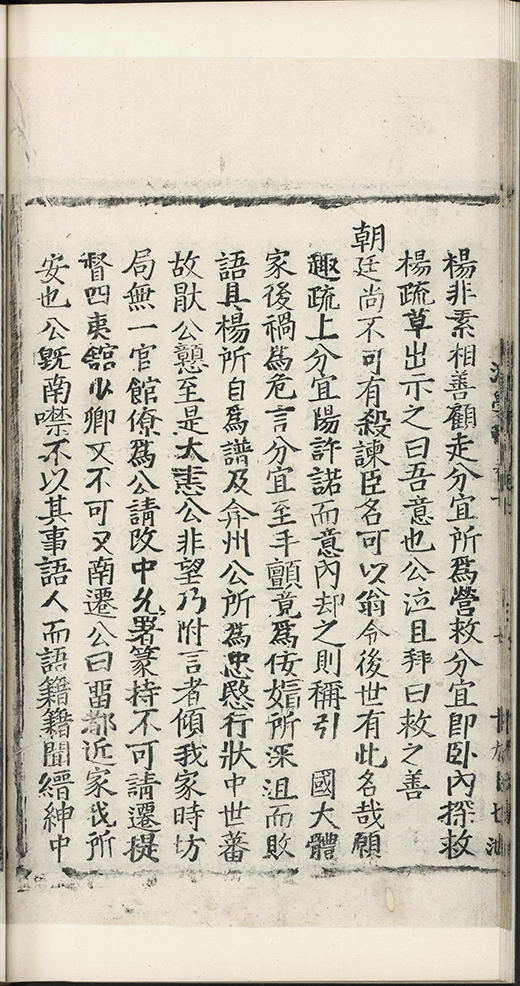 楊非素相善顧走分宜所爲營救分宜即卧內探救
楊疏草出示之曰吾意也公泣且拜曰救之善
朝廷尚不可有殺諫臣名可以翁令後世有此名哉願
趣疏上分宜陽許諾而意內却之則稱引 國大體
家後禍爲危言分宜至手顫竟爲侫媢所深沮而敗
語具楊所自爲譜及弇州公所爲忠愍行狀中世蕃
故猒公戇至是大恚公非望乃附言者傾我家時坊
局無一官館僚爲公請改中允署篆持不可請遷提
督四夷館少卿又不可又南遷公曰畱都近家戊所
安也公既南噤不以其事語人而語籍籍聞縉紳中